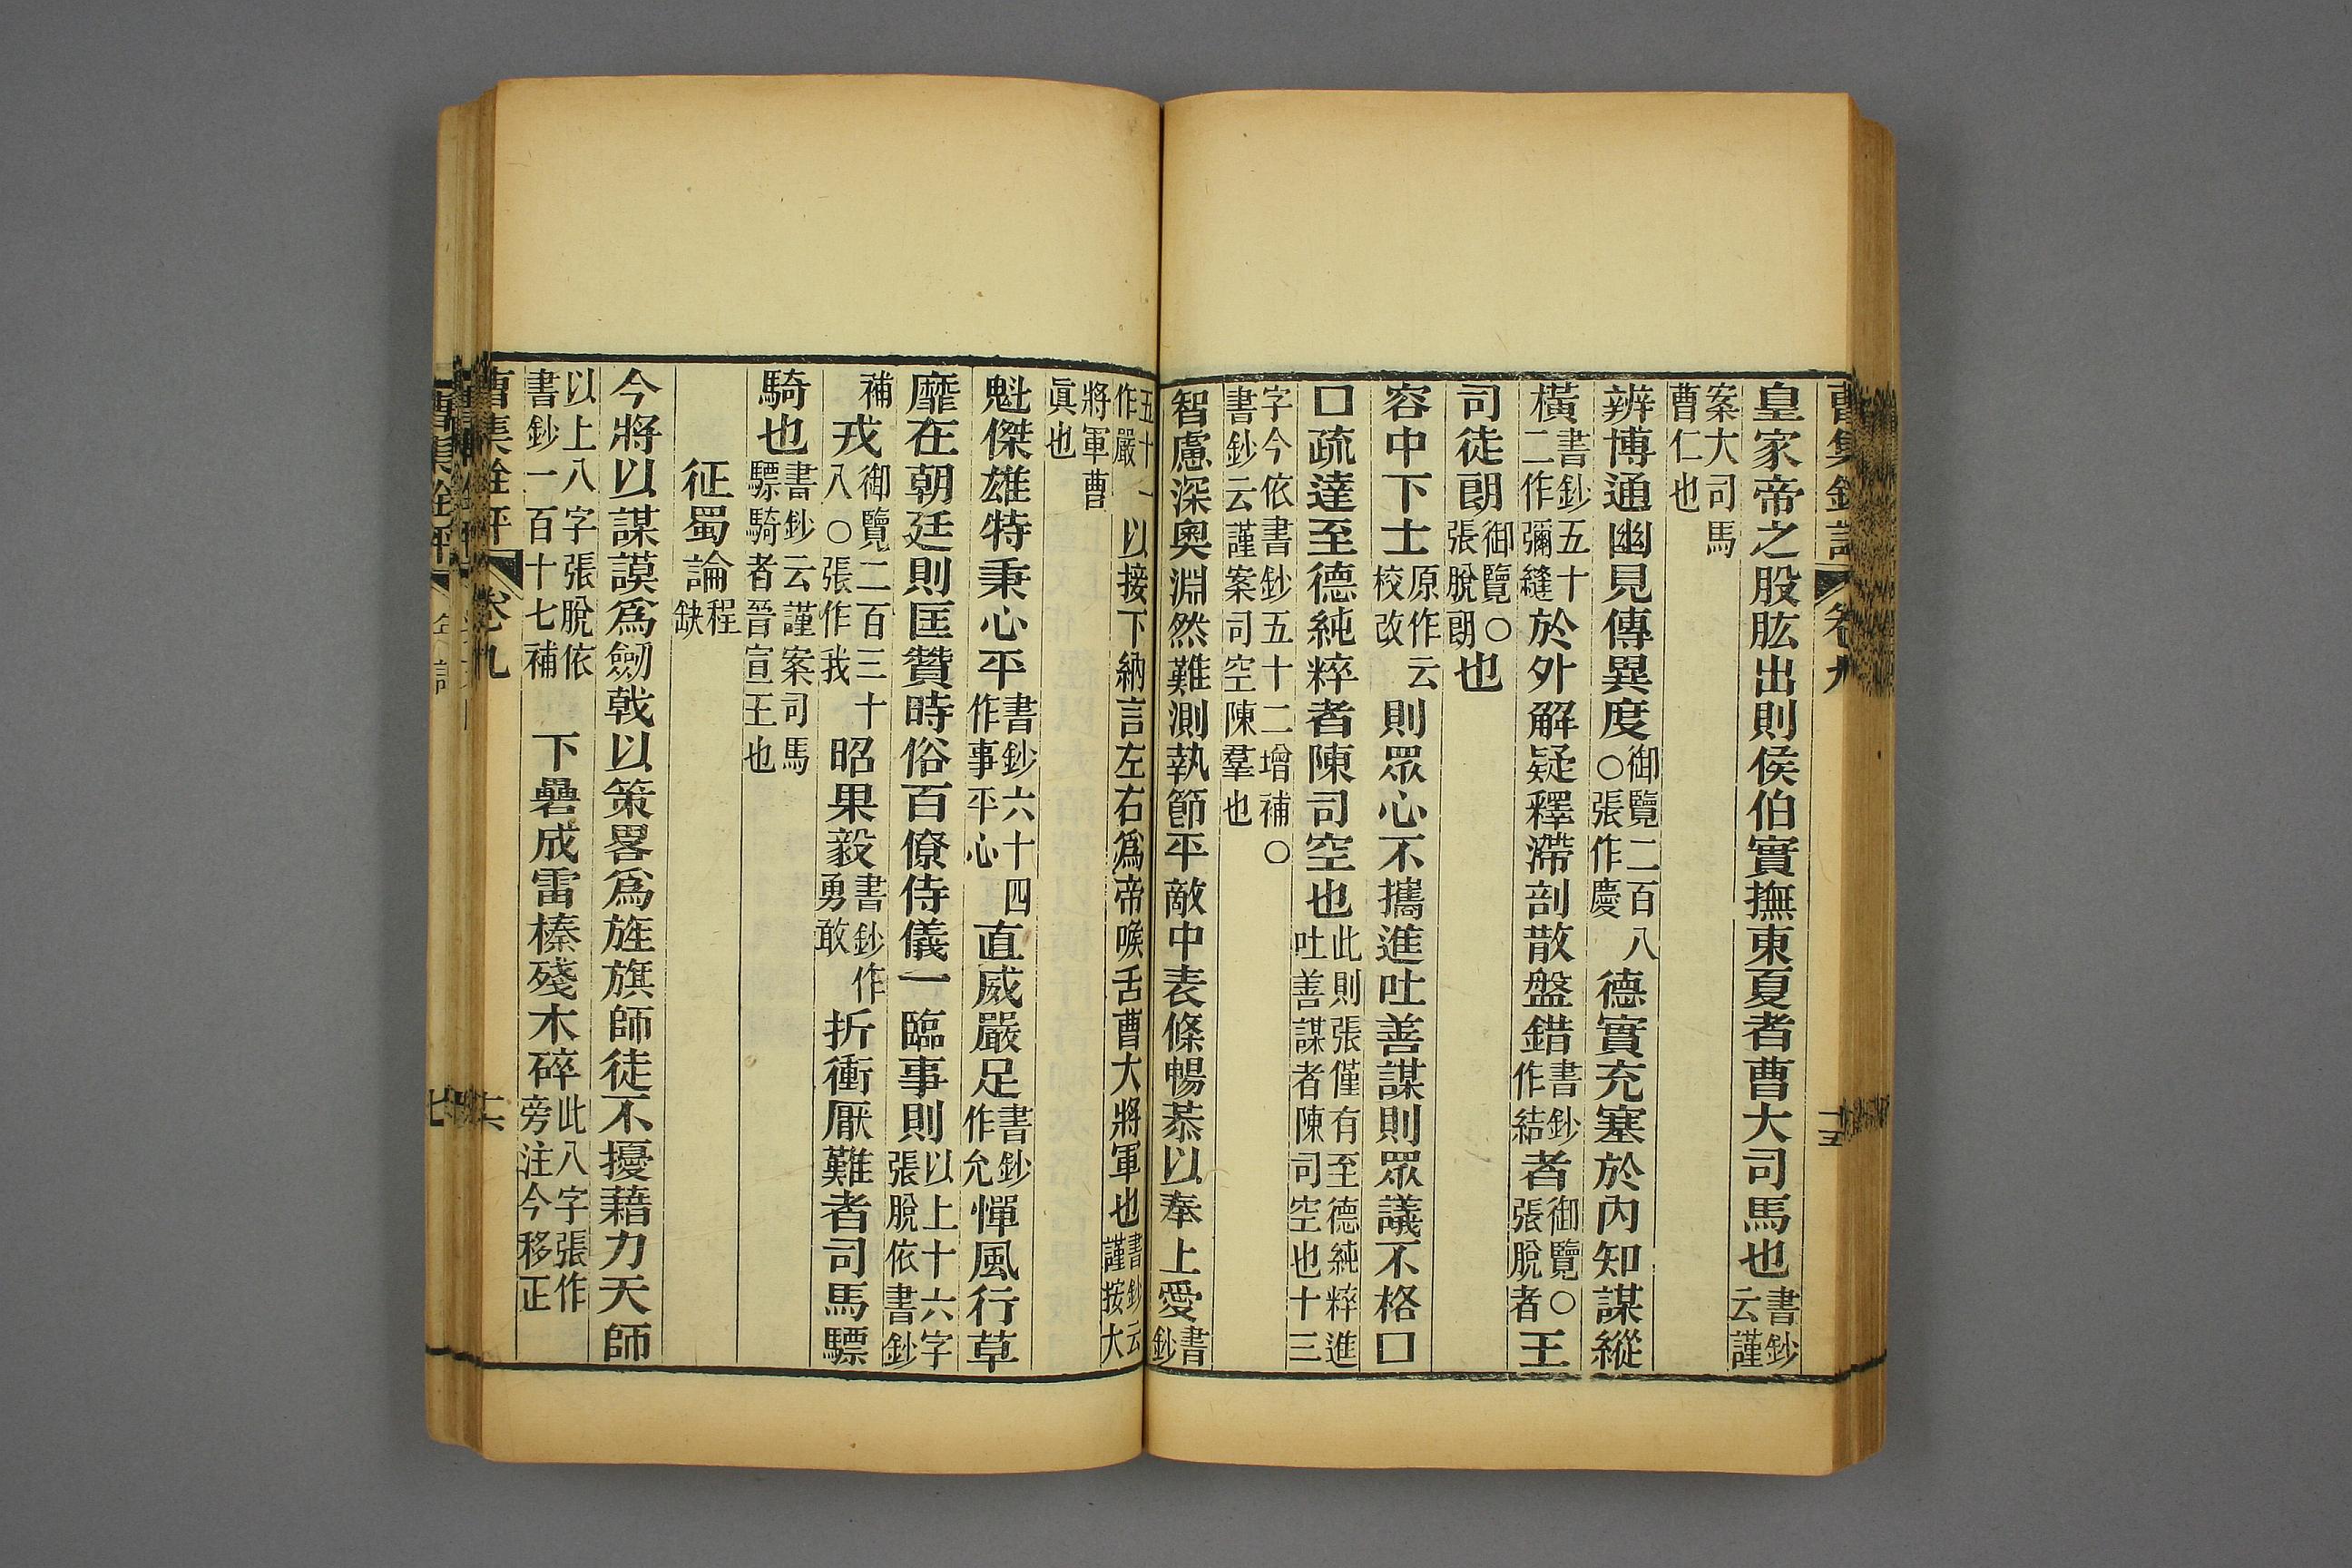 皇家帝之股肱出則侯伯實撫東夏者曹大司馬也書鈔云謹
案大司馬曹仁也
辨博通幽見傳異度御覽二百八○張作慶德實充塞於內知謀縱
橫書鈔五十二作彌縫於外解疑釋滯剖散盤錯書鈔作結者御覽○張脫者王
司徒朗御覽○張脫朗也
容中下士原作云校改則眾心不攜進吐善謀則眾議不格口
口疏達至德純粹者陳司空也此則張僅有至德純粹進吐善謀者陳司空也十三
字今依書鈔五十二增補○書鈔云謹案司空陳羣也
智慮深奧淵然難測執節平敵中表條暢恭以奉上愛書鈔
五十一作嚴以接下納言左右為帝喉舌曹大將軍也書鈔云謹按大
將軍曹眞也
魁傑雄特秉心平書鈔六十四作事平心直威嚴足書鈔作允憚風行草
靡在朝廷則匡贊時俗百僚侍儀一臨事則以上十六字張脫依書鈔
補戎御覽二百三十八○張作我昭果毅書鈔作勇敢折衝厭難者司馬驃
騎也書鈔云謹案司馬驃騎者晉宣王也
征蜀論程缺
今將以謀謨為劒戟以策畧為旌旗師徒不擾藉力天師
以上八字張脫依書鈔一百十七補下礨成雷榛殘木碎此八字張作旁注今移正
曹集銓評
卷九